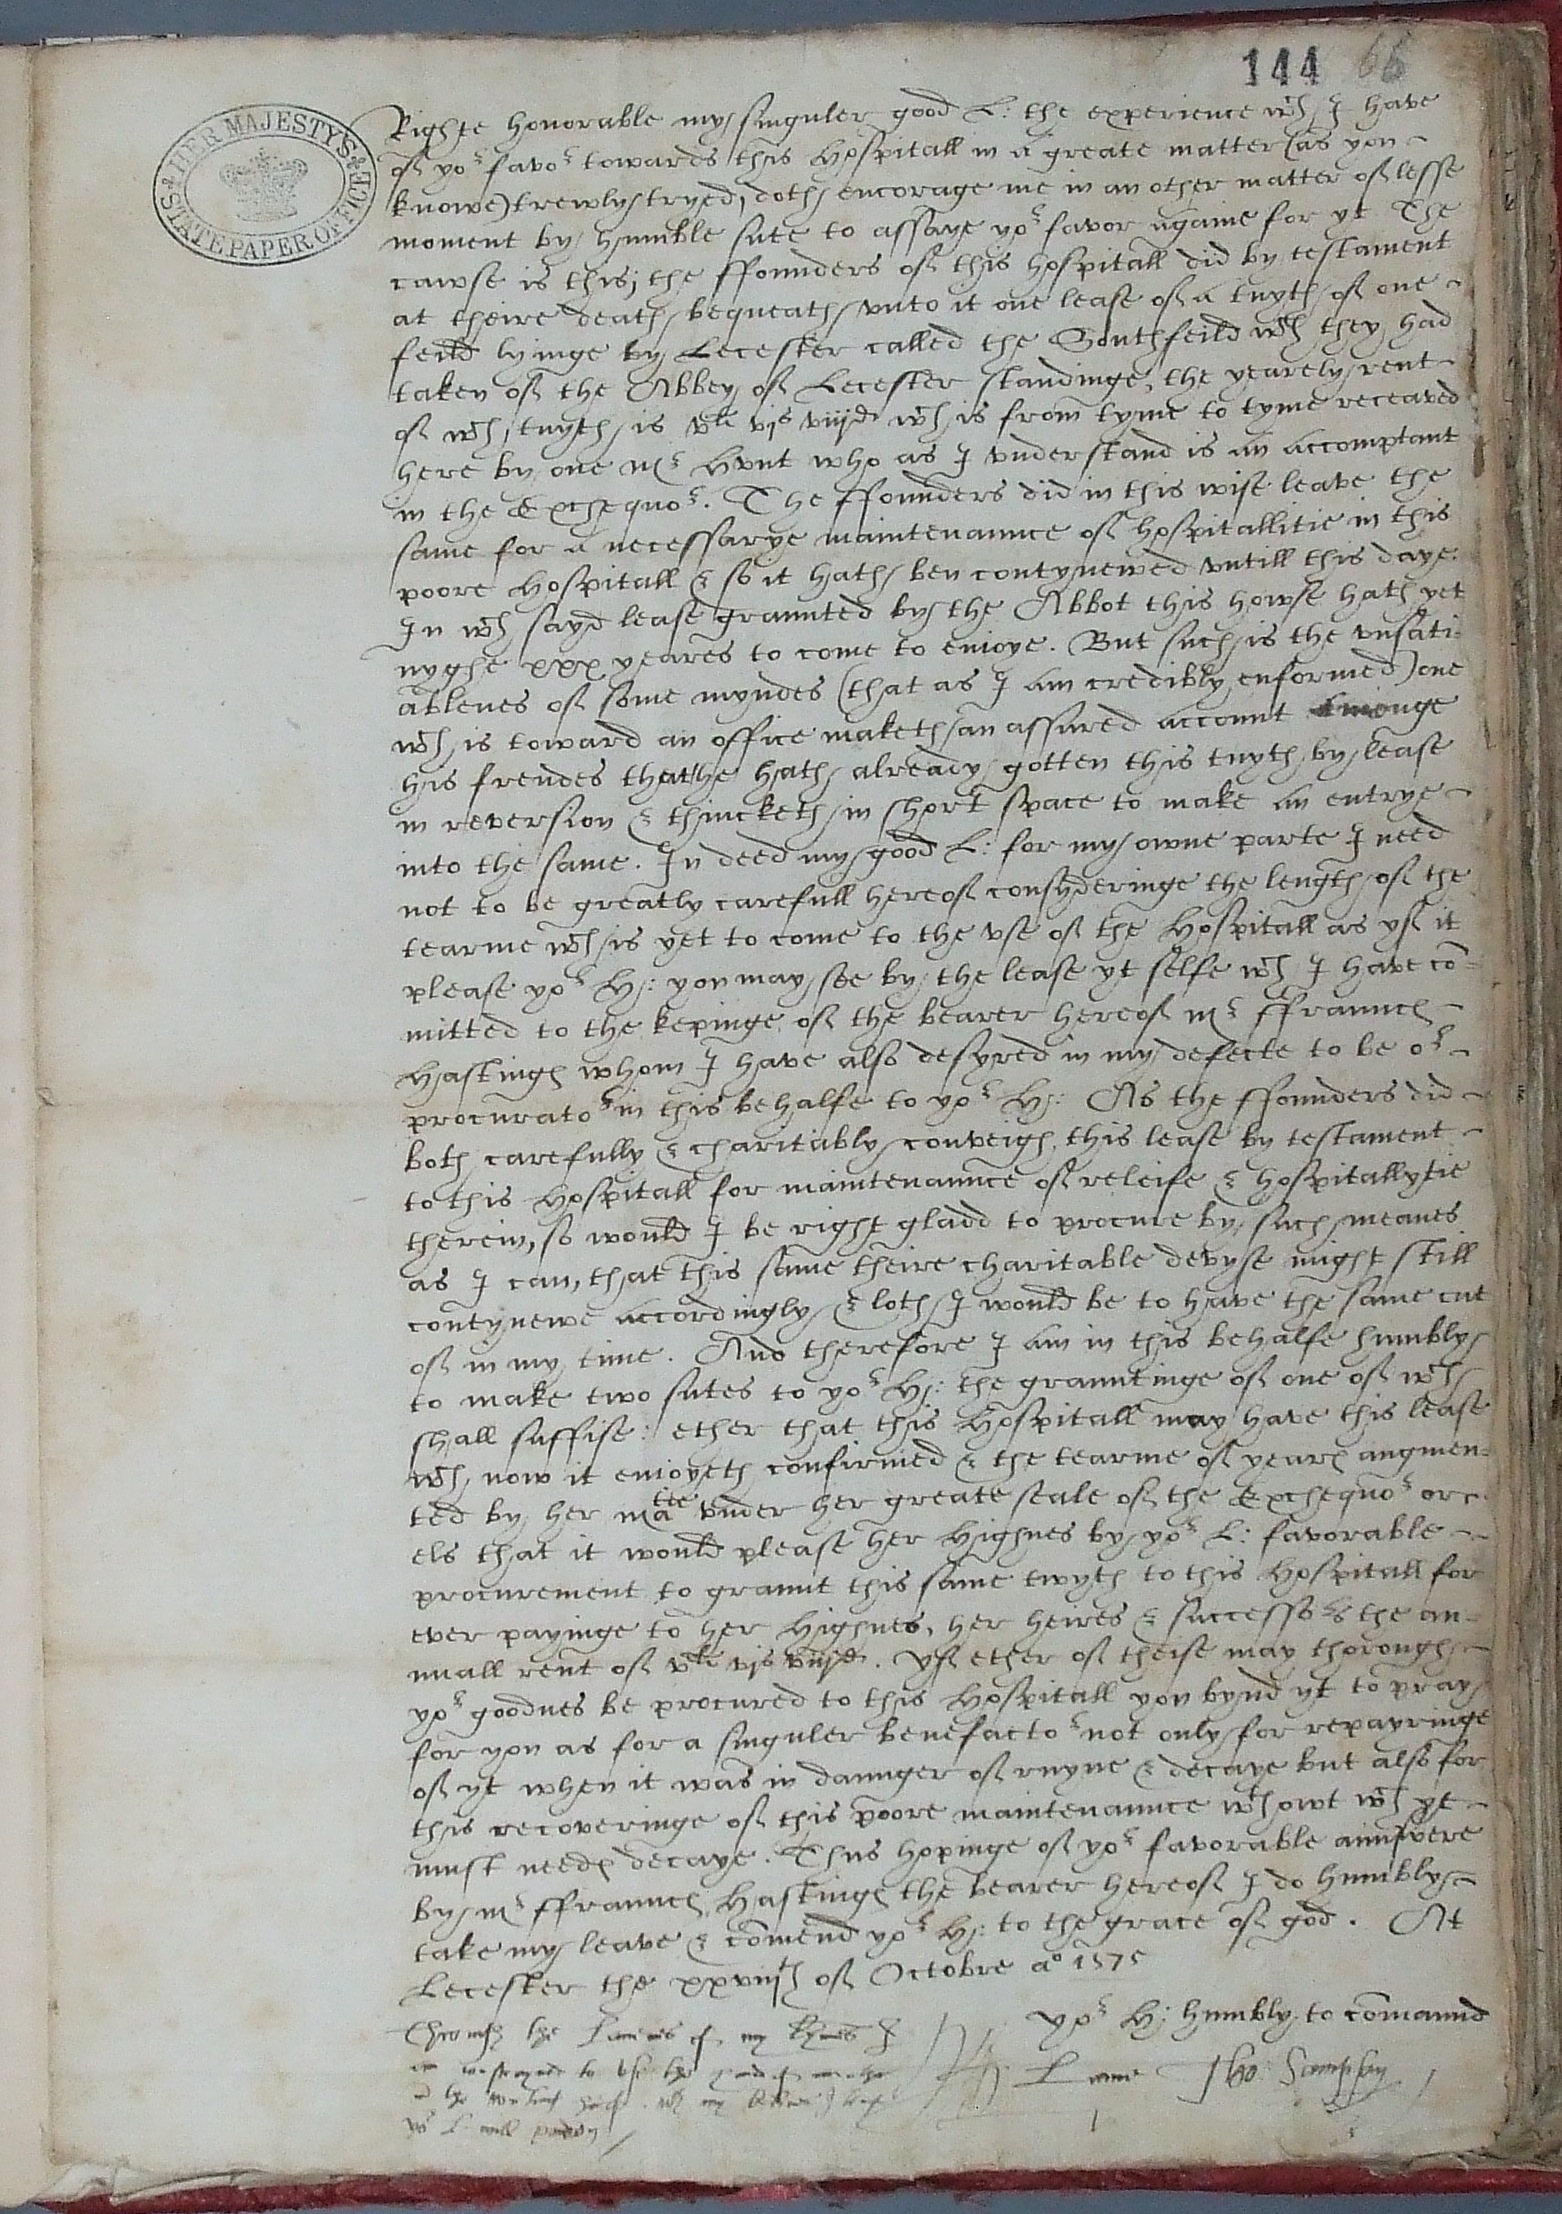 144 66
HER MAJESTY'S STATE PAPER OFFICE
Righte honorable my singuler good L: the experience wch I have
of yor favor towards this Hospitall in a greate matter (as you
knowe) trewly tryed, doth encorage me in an other matter of lesse
moment by humble sute to assaye yor favor againe for yt The
cawse is this; the ffounders of this hospitall did by testament
at theire death bequeath vnto it one lease of a tuyth of one
feild lyinge by Lecester called the Southfeild wch they had
taken of the Abbey of Lecester standinge, the yearely rent
of wch tuyth is vli vjs viijd wch is from tyme to tyme receaved
here by one Mr Hunt who as I vnderstand is an accomptant
in the Exchequor. The ffounders did in this wise leave the
same for a necessarye maintenaunce of hospitallitie in this
poore Hospitall & so it hath ben contynewed vntill this daye.
In wch sayd lease graunted by the Abbot this howse hath yet
nyghe xxx yeares to come to enioye. But such is the vnsati-
ablenes of some myndes (that as I am credibly enformed) one
wch is toward an office maketh an assured account amonge
his frendes that he hath already gotten this tuyth by lease
in reversion & thincketh in short space to make an entrye
into the same. In deed my good L: for my owne parte I need
not to be greatly carefull hereof consyderinge the length of the
tearme wch is yet to come to the vse of the Hospitall as yf it
please yor H: you may see by the lease yt selfe wch I have co-
mitted to the kepinge of the bearer hereof Mr ffraunces
Hastinges whom I have also desyred in my defecte to be or
procurator in this behalfe to yor H: As the ffounders did
both carefully & charitably conveigh this lease by testament
to this Hospitall for maintenaunce of releife & hospitallytie
therein, so would I be right gladd to procure by such meanes
as I can, that this same theire charitable devyse might still
contynewe accordingly & loth I would be to have the same cut
of in my time. And therefore I am in this behalfe humbly
to make two sutes to yor H: the grauntinge of one of wch
shall suffise: ether that this Hospitall may have this lease
wch now it enioyeth confirmed & the tearme of yeares augmen-
ted by her Matie vnder her greate seale of the Exchequor or
els that it would please her Highnes by yor L: favorable
procurement to graunt this same twyth to this Hospitall for
ever payinge to her Highnes, her heires & successors the an-
nuall rent of vli vjs viijd. Yf ether of theise may thorough
yor goodnes be procured to this Hospitall you bynd yt to pray
for you as for a singuler benefactor not only for repayringe
of yt when it was in daunger of ruyne & decaye but also for
this recoveringe of this poore maintenaunce wthowt wch yt
must needes decaye. Thus hopinge of yor favorable aunswere
by Mr ffraunces Hastinges the bearer hereof I do humbly
take my leave & comend yor H: to the grace of god. At
Lecester the xxviijth of Octobre ao 1575
yor H: humbly to comaund
Tho: Sampson
Through the lamenes of my hands I
am constrayned to vse the hand of an other
yor L: will pardon